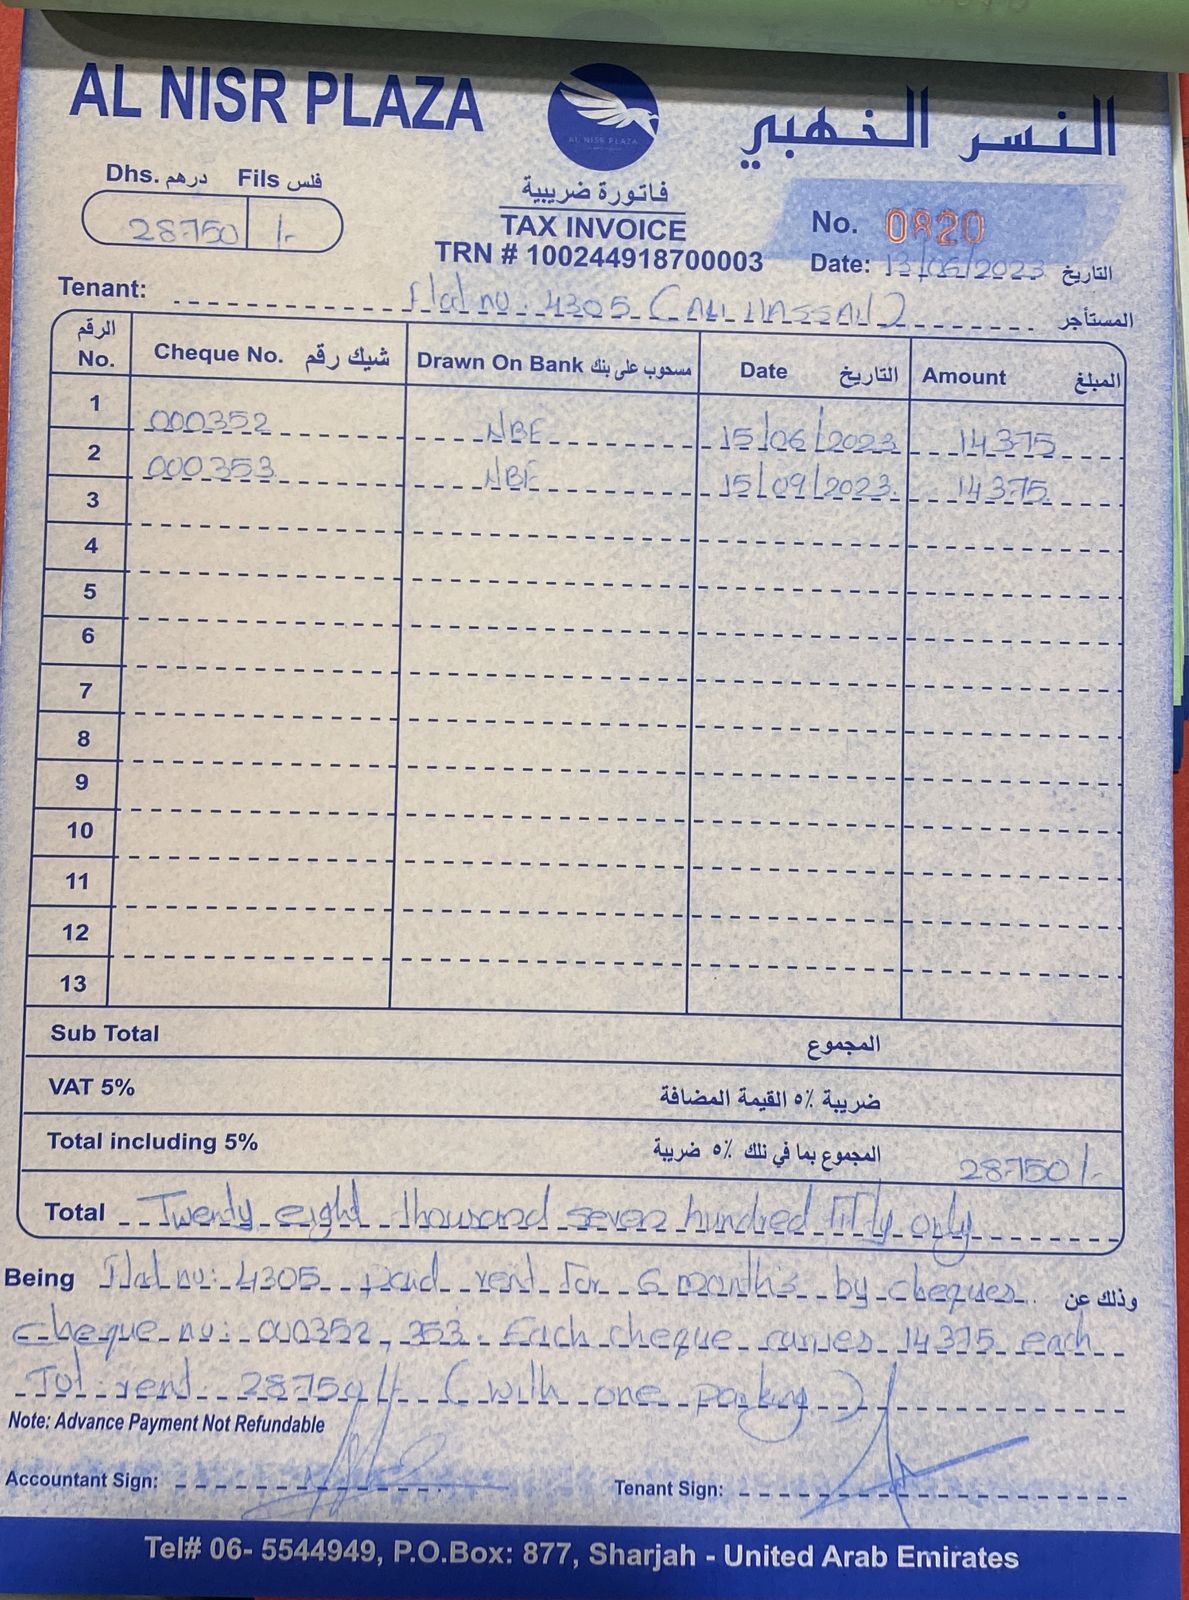 AL NISR PLAZA
AL NISR PLAZA
النسر الذهبي
Dhs. درهم Fils فلس
28750 /-
فاتورة ضريبية
TAX INVOICE
TRN # 100244918700003
No. 0820
Date: 13/06/2023 التاريخ
Tenant: flat no. 4305 (ALI HASSAN) المستأجر
الرقم No. Cheque No. شيك رقم Drawn On Bank مسحوب على بنك Date التاريخ Amount المبلغ
1 000352 NBF 15/06/2023 14375
2 000353 NBF 15/09/2023 14375
3
4
5
6
7
8
9
10
11
12
13
Sub Total المجموع
VAT 5% ضريبة ٥٪ القيمة المضافة
Total including 5% المجموع بما في تلك ٥٪ ضريبة 28750/-
Total Twenty eight thousand seven hundred fifty only
Being Flat no: 4305 paid rent for 6 months by cheques. وذلك عن
cheque no: 000352, 353. Each cheque carries 14375 each
Tot rent 28750/- (with one parking)
Note: Advance Payment Not Refundable
Accountant Sign:
Tenant Sign:
Tel# 06- 5544949, P.O.Box: 877, Sharjah - United Arab Emirates